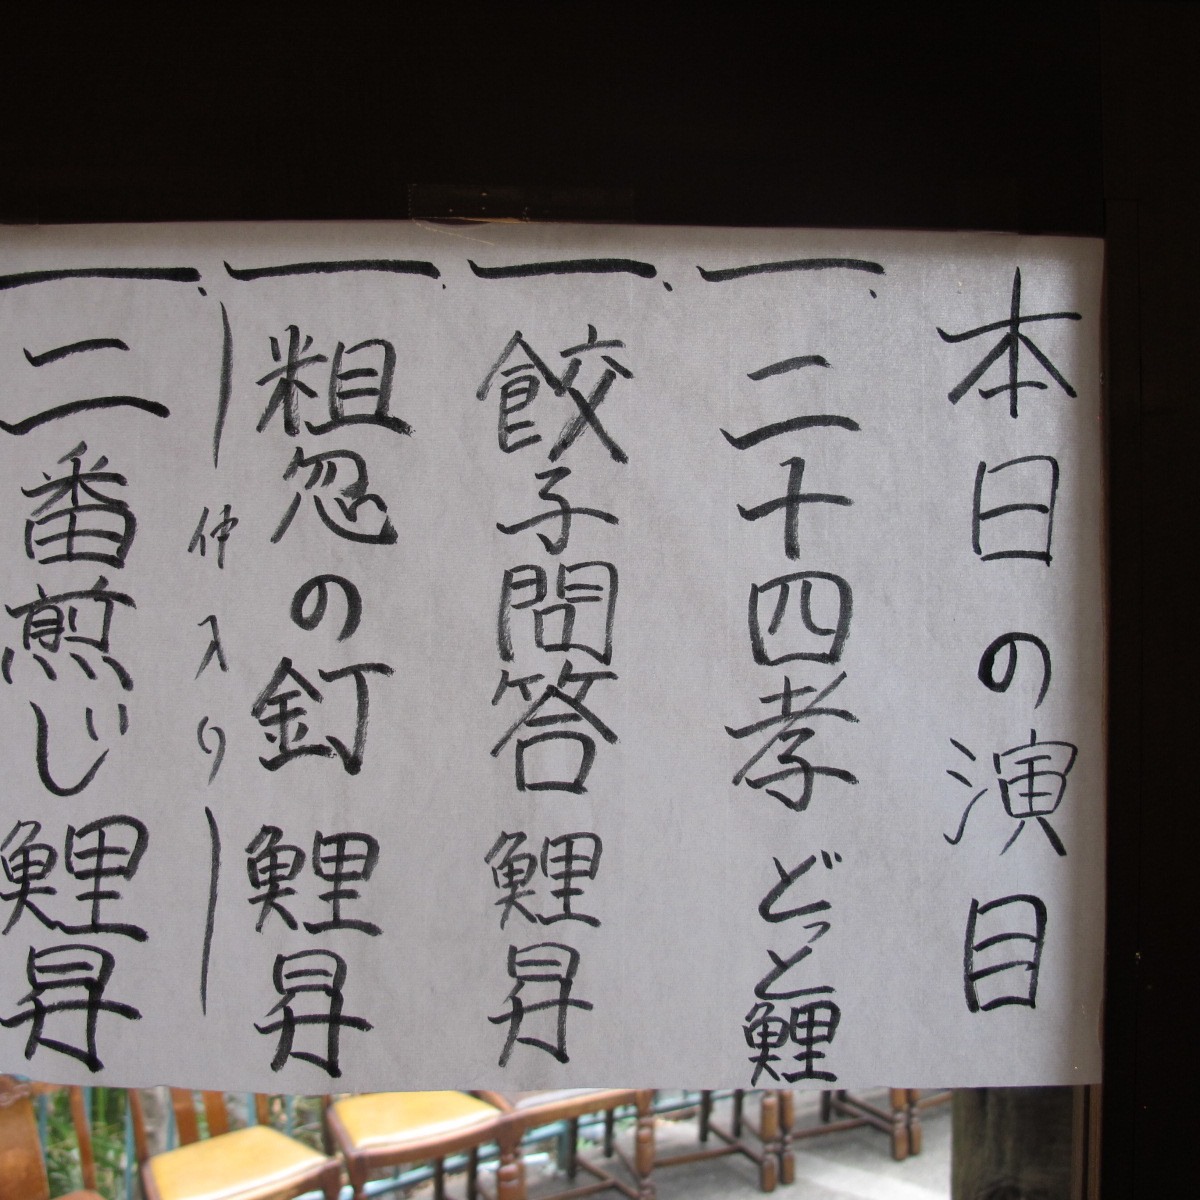 本日の演目
一、二十四孝 どっと鯉
一、餃子問答 鯉昇
一、粗忽の釘 鯉昇
｜仲入り｜
一、二番煎じ 鯉昇